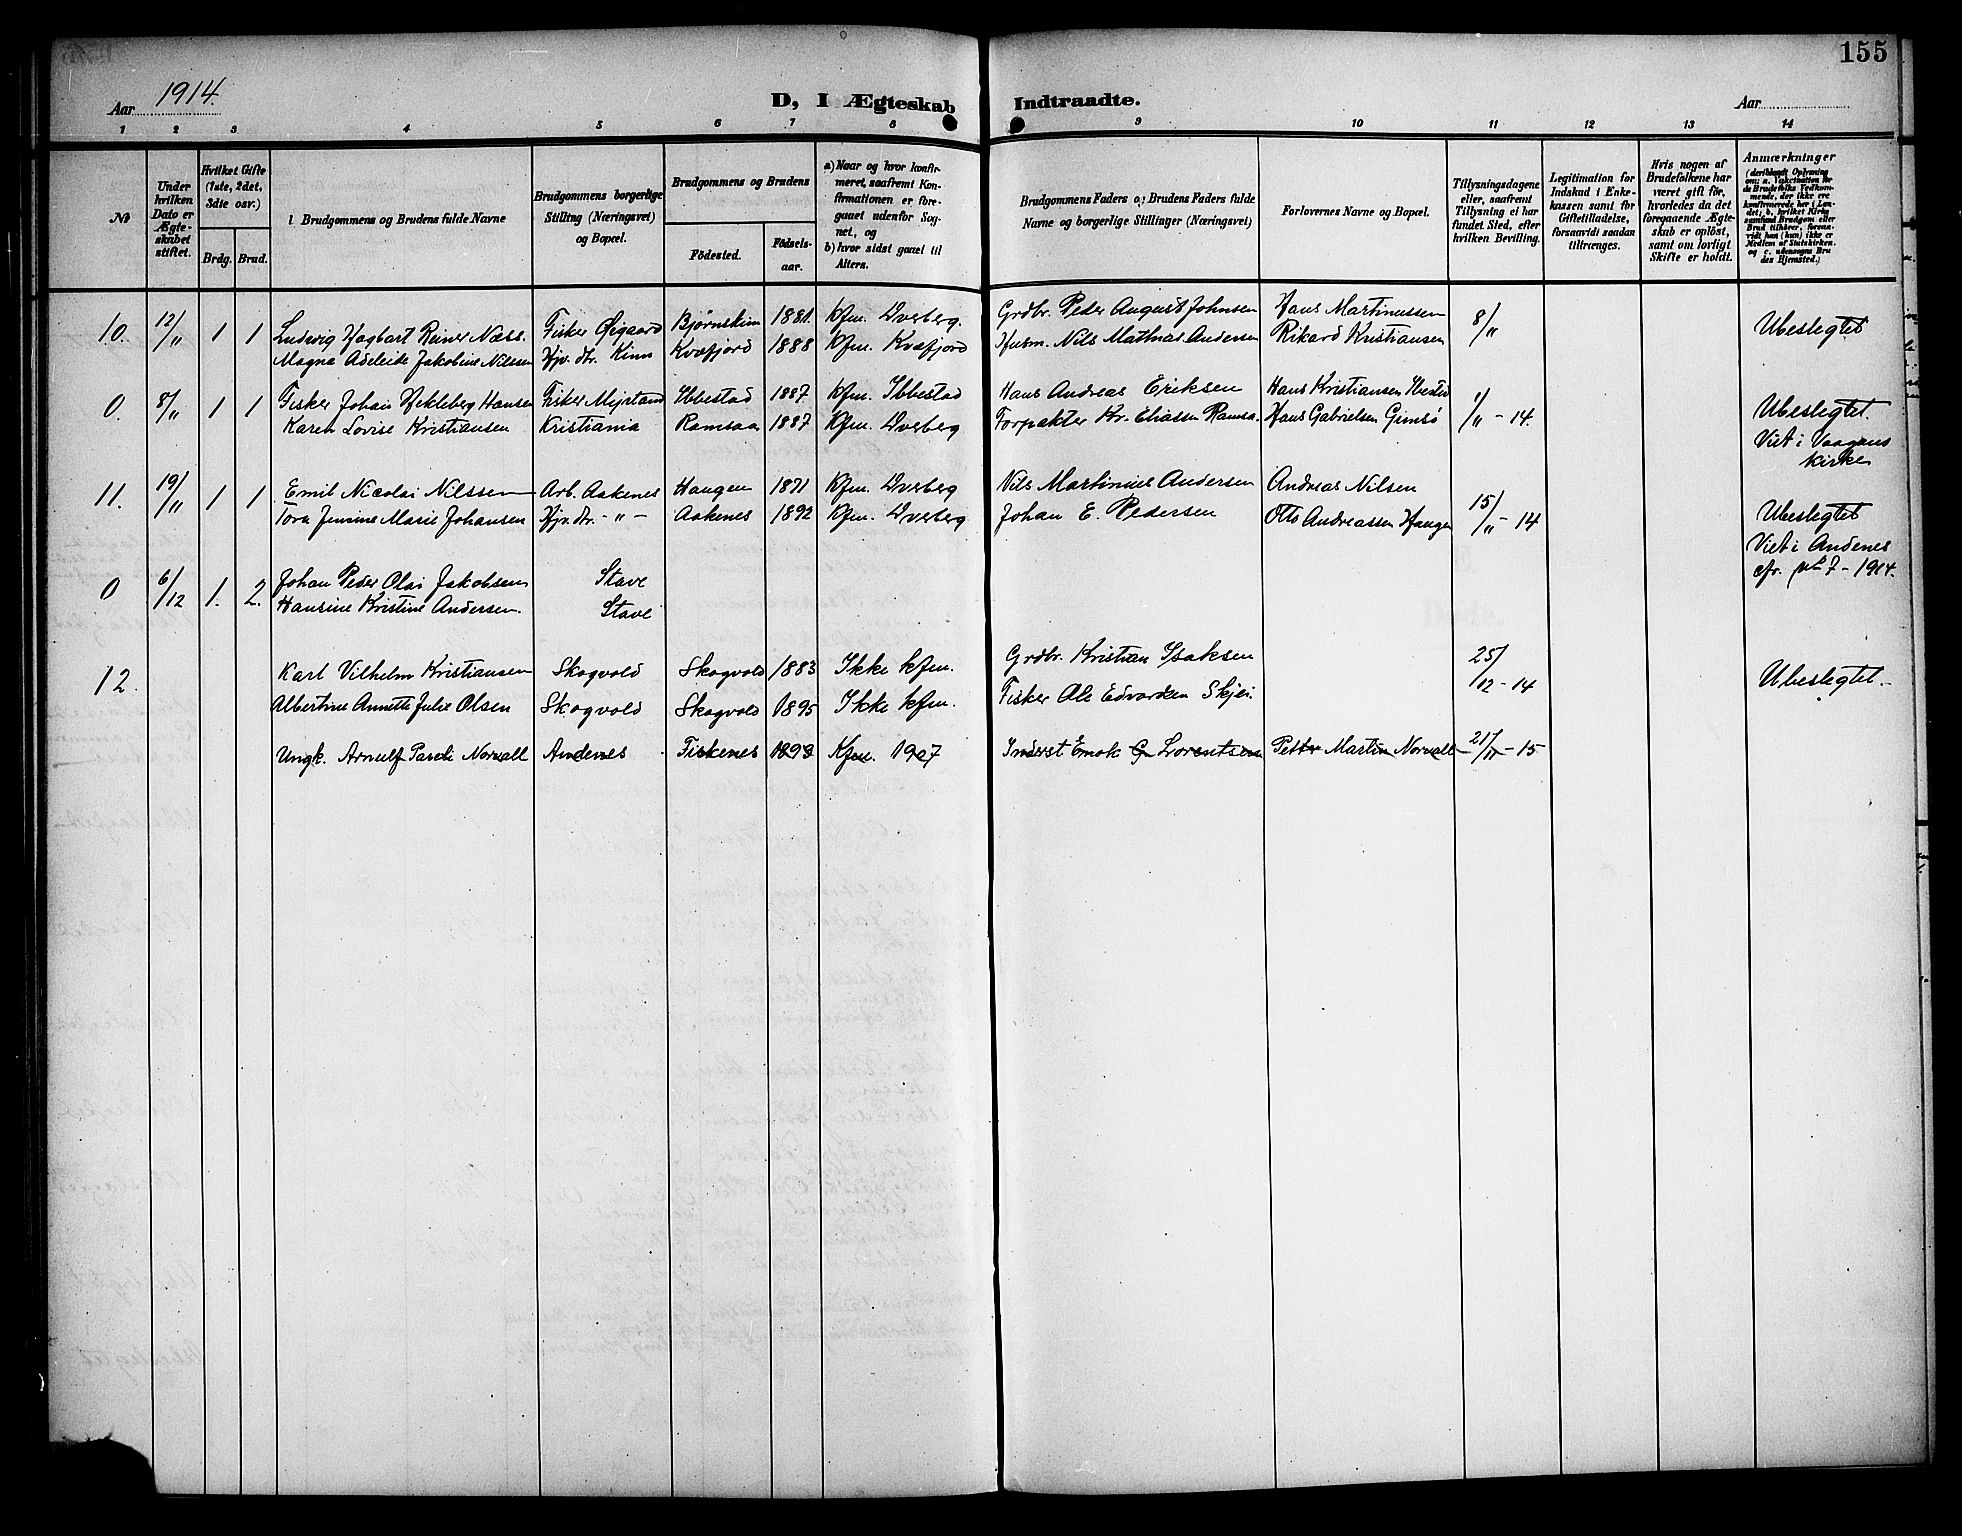 155
Aar 1914.
D, I Ægteskab Indtraadte.
Aar
1 2 3 4 5 6 7 8 9 10 11 12 13 14
№
Under hvilken Dato er Ægteskabet stiftet.
Hvilket Gifte (1ste, 2det, 3die osv.)
Brdg. Brud.
Brudgommens og Brudens fulde Navne
Brudgommens borgerlige Stilling (Næringsvei) og Bopæl.
Brudgommens og Brudens
Födested.
Födselsaar.
a) Naar og hvor konfirmeret, saafremt Konfirmationen er foregaaet udenfor Sognet, og
b) hvor sidst gaaet til Alters.
Brudgommens Faders og Brudens Faders fulde Navne og borgerlige Stillinger (Næringsvei)
Forlovernes Navne og Bopæl.
Tillysningsdagene eller, saafremt Tillysning ei har fundet Sted, efter hvilken Bevilling.
Legitimation for Indskud i Enkekassen samt for Giftetilladelse, forsaavidt saadan tiltrænges.
Hvis nogen af Brudefolkene har været gift för, hvorledes da det foregaaende Ægteskab er oplöst, samt om lovligt Skifte er holdt.
Anmærkninger (deriblandt Oplysning om: a. Vakcination for de Brudefolks Vedkommende, der ikke ere konfirmerede her i Landet; b. hvilket Kirkesamfund Brudgom eller Brud tilhører, forsaavidt han (hun) ikke er Medlem af Statskirken, og c. udensogns Brudes Hjemsted.)
10. 12/" 1 1 Ludwig Hagbart Reiner Næss. Fisker Øigaard Bjørnskin 1881. Kfm. Dverberg. Grdbr. Peder August Johnsen Hans Martinussen 8/" Ubeslegtet
Magna Adeleide Jakobine Nilssen Hjv. dtr. Kinn Kvæfjord 1888 Kfm. Kvæfjord Husm. Nils Mathias Andersen Rikard Kristiansen
0. 8/" 1 1 Fisker Johan Hekleberg Hansen Fisker Myrland Ibbestad 1887 Kfm. Ibbestad Hans Andreas Eriksen Hans Kristiansen Ibestad 1/" - 14. Ubeslegtet.
Karen Lovise Kristiansen Kristiania Ramsaa 1887 Kfm. Dverberg Forpakter Kr. Eliassen Ramsa. Hans Gabrielsen Gimsø
Viet i Vaagans kirke
11. 19/" 1 1 Emil Nicolai Nilssen Arb. Aakenes Haugen 1871 Kfm. Dverberg Nils Martinius Andersen Andreas Nilsen 15/" - 14 Ubeslegtet
Tora Jensine Marie Johansen Hjv. dtr. - " - Aakenes 1892 Kfm. Dverberg Johan E. Pedersen Otto Andreassen Haugen
0 6/12 1. 2. Johan Peder Olai Jakobsen Stave Viet i Andenes
Hansine Kristine Andersen. Stave cfr. № 7 - 1914.
12. Karl Vilhelm Kristiansen Skogvold Skogvold 1883 Ikke kfm. Grdbr. Kristian Isaksen 25/12 - 14 Ubeslegtet.
Albertine Annette Julie Olsen Skogvold Skogvold 1895 Ikke kfm. Fisker Ole Edvardsen Skjei.
Ungk. Arnulf Norvall Andenes Fiskenes 1893 Kfm. 1907 Inderst Enok G Lorentsen Petter Martin Norvall 21/" - 15